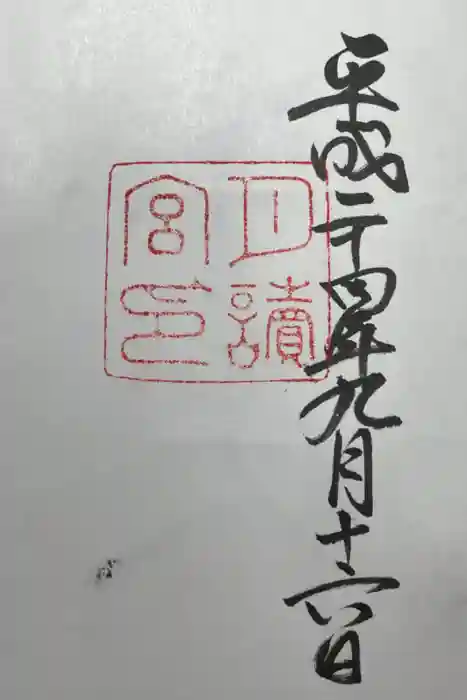 平成二十四年九月十六日
月讀
宮印